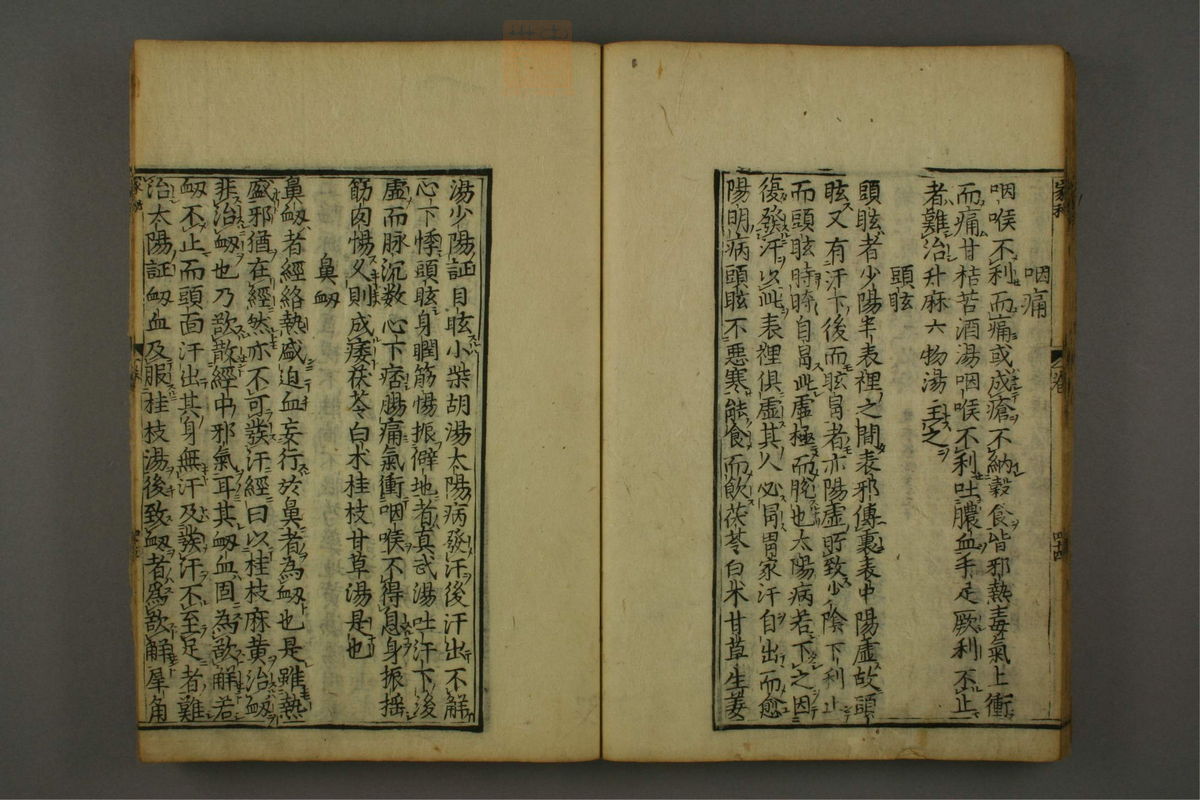 咽痛
咽喉不利而痛或成瘡不納穀食皆邪熱毒氣上衝
而痛甘桔苦酒湯咽喉不利吐膿血手足厥利不止
者難治升麻六物湯主之
頭眩
頭眩者少陽半表裡之間表邪傳裏表中陽虛故頭
眩又有汗下後而眩冒者亦陽虛所致少陰下利止
而頭眩時時自冒此虛極而脫也太陽病若下之因
復發汗以此表裡俱虛其人必冒冒家汗自出而愈
陽明病頭眩不惡寒能食而飲茯苓白朮甘草生姜
湯少陽証目眩小柴胡湯太陽病發汗後汗出不解
心下悸頭眩身瞤筋惕振僻地者真武湯吐汗下後
虛而脉沉数心下痞腸痛氣衝咽喉不得息身振揺
筋肉惕久則成痿茯苓白朮桂枝甘草湯是也
鼻衂
鼻衂者經絡熱盛迫血妄行於鼻者為衂也是雖熱
盛邪猶在經然亦不可發汗經曰以桂枝麻黄治衂
非治衂也乃欲散經中邪氣耳其衂血固為欲解若
衂不止而頭面汗出其身無汗及發汗不至足者難
治太陽証衂血及服桂枝湯後致衂者爲欲解犀角